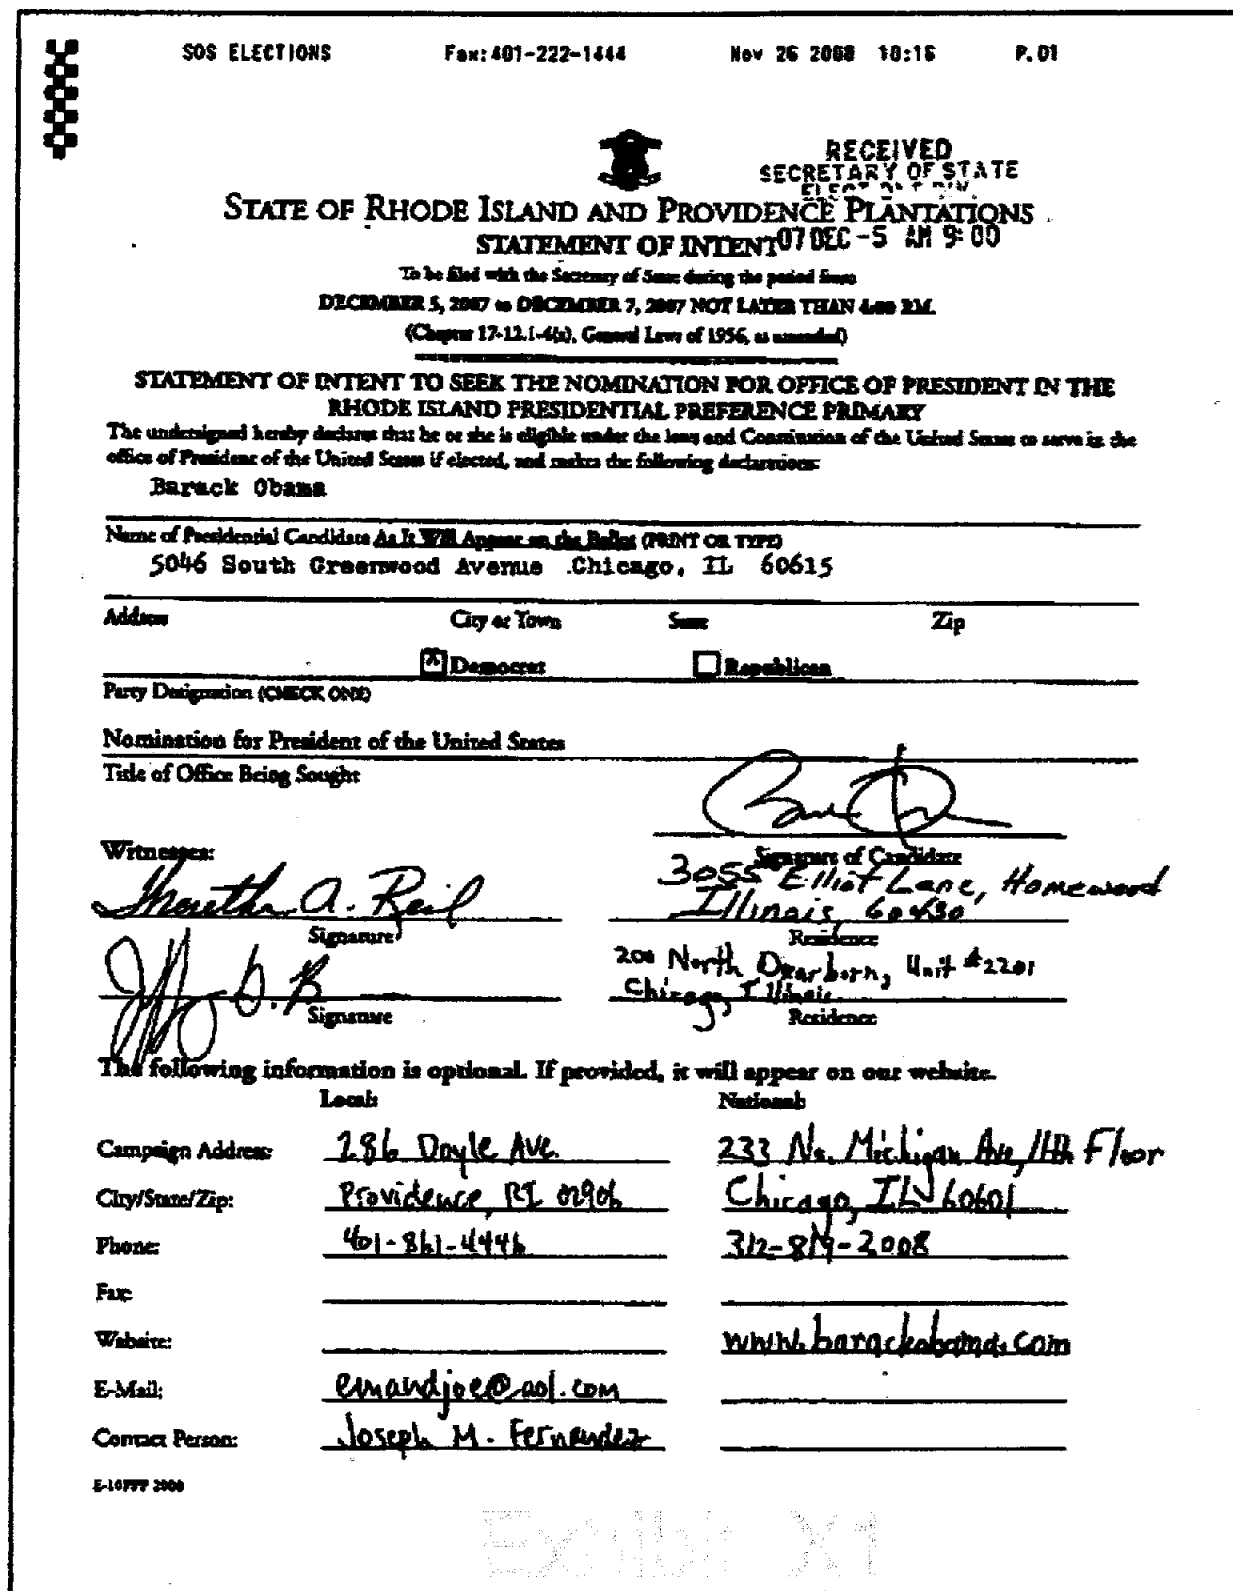 SOS ELECTIONS Fax:401-222-1444 Nov 26 2008 10:16 P.01
RECEIVED
SECRETARY OF STATE
STATE OF RHODE ISLAND AND PROVIDENCE PLANTATIONS
STATEMENT OF INTENT 07 DEC -5 AM 9:00
To be filed with the Secretary of State during the period from
DECEMBER 5, 2007 to DECEMBER 7, 2007 NOT LATER THAN 4:00 P.M.
(Chapter 17-12.1-4(a), General Laws of 1956, as amended)
STATEMENT OF INTENT TO SEEK THE NOMINATION FOR OFFICE OF PRESIDENT IN THE
RHODE ISLAND PRESIDENTIAL PREFERENCE PRIMARY
The undersigned hereby declares that he or she is eligible under the laws and Constitution of the United States to serve in the
office of President of the United States if elected, and makes the following declarations:
Barack Obama
Name of Presidential Candidate As It Will Appear on the Ballot (PRINT OR TYPE)
5046 South Greenwood Avenue Chicago, IL 60615
Address City or Town State Zip
X Democrat Republican
Party Designation (CHECK ONE)
Nomination for President of the United States
Title of Office Being Sought
Witnesses: Signature of Candidate
3055 Elliot Lane, Homewood
A. Illinois, 60430
Signature Residence
200 North Dearborn, Unit #2201
Chicago, Illinois
Signature Residence
The following information is optional. If provided, it will appear on our website.
Local: National:
Campaign Address: 286 Doyle Ave. 233 No. Michigan Ave, 11th Floor
City/State/Zip: Providence, RI 02906 Chicago, IL 60601
Phone: 401-861-4446 312-819-2008
Fax:
Website: www.barackobama.com
E-Mail: emandjoe@aol.com
Contact Person: Joseph M. Fernandez
Exhibit X1